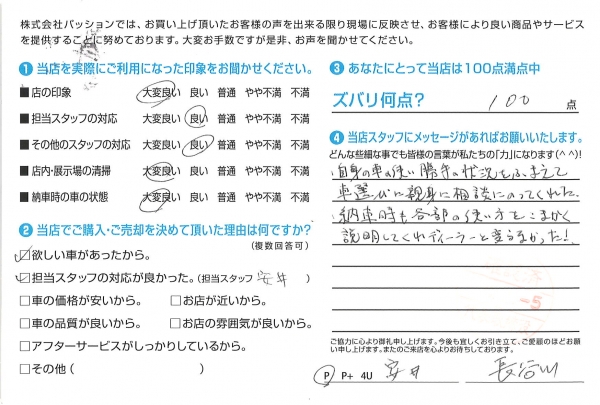 株式会社パッションでは、お買い上げ頂いたお客様の声を出来る限り現場に反映させ、お客様により良い商品やサービス
を提供することに努めております。大変お手数ですが是非、お声を聞かせてください。
❶ 当店を実際にご利用になった印象をお聞かせください。
■ 店の印象 大変良い 良い 普通 やや不満 不満
■ 担当スタッフの対応 大変良い 良い 普通 やや不満 不満
■ その他のスタッフの対応 大変良い 良い 普通 やや不満 不満
■ 店内・展示場の清掃 大変良い 良い 普通 やや不満 不満
■ 納車時の車の状態 大変良い 良い 普通 やや不満 不満
❷ 当店でご購入・ご売却を決めて頂いた理由は何ですか?
(複数回答可)
☑欲しい車があったから。
☑担当スタッフの対応が良かった。(担当スタッフ 安井 )
□車の価格が安いから。 □お店が近いから。
□車の品質が良いから。 □お店の雰囲気が良いから。
□アフターサービスがしっかりしているから。
□その他 ( )
❸ あなたにとって当店は100点満点中
ズバリ何点? 100 点
❹ 当店スタッフにメッセージがあればお願いいたします。
どんな些細な事でも皆様の言葉が私たちの「力」になります(^^)!
自身の車の使い勝手の状況をふまえて
車選びに親身に相談にのってくれた。
納車時も各部の使い方をこまかく
説明してくれディーラーと変わらなかった!
-5
ご協力に心より御礼申し上げます。今後も宜しくお引き立て、ご愛顧のほどお願
い申し上げます。またのご来店を心よりお待ちしております。
P P+ 4U 安井 長谷川